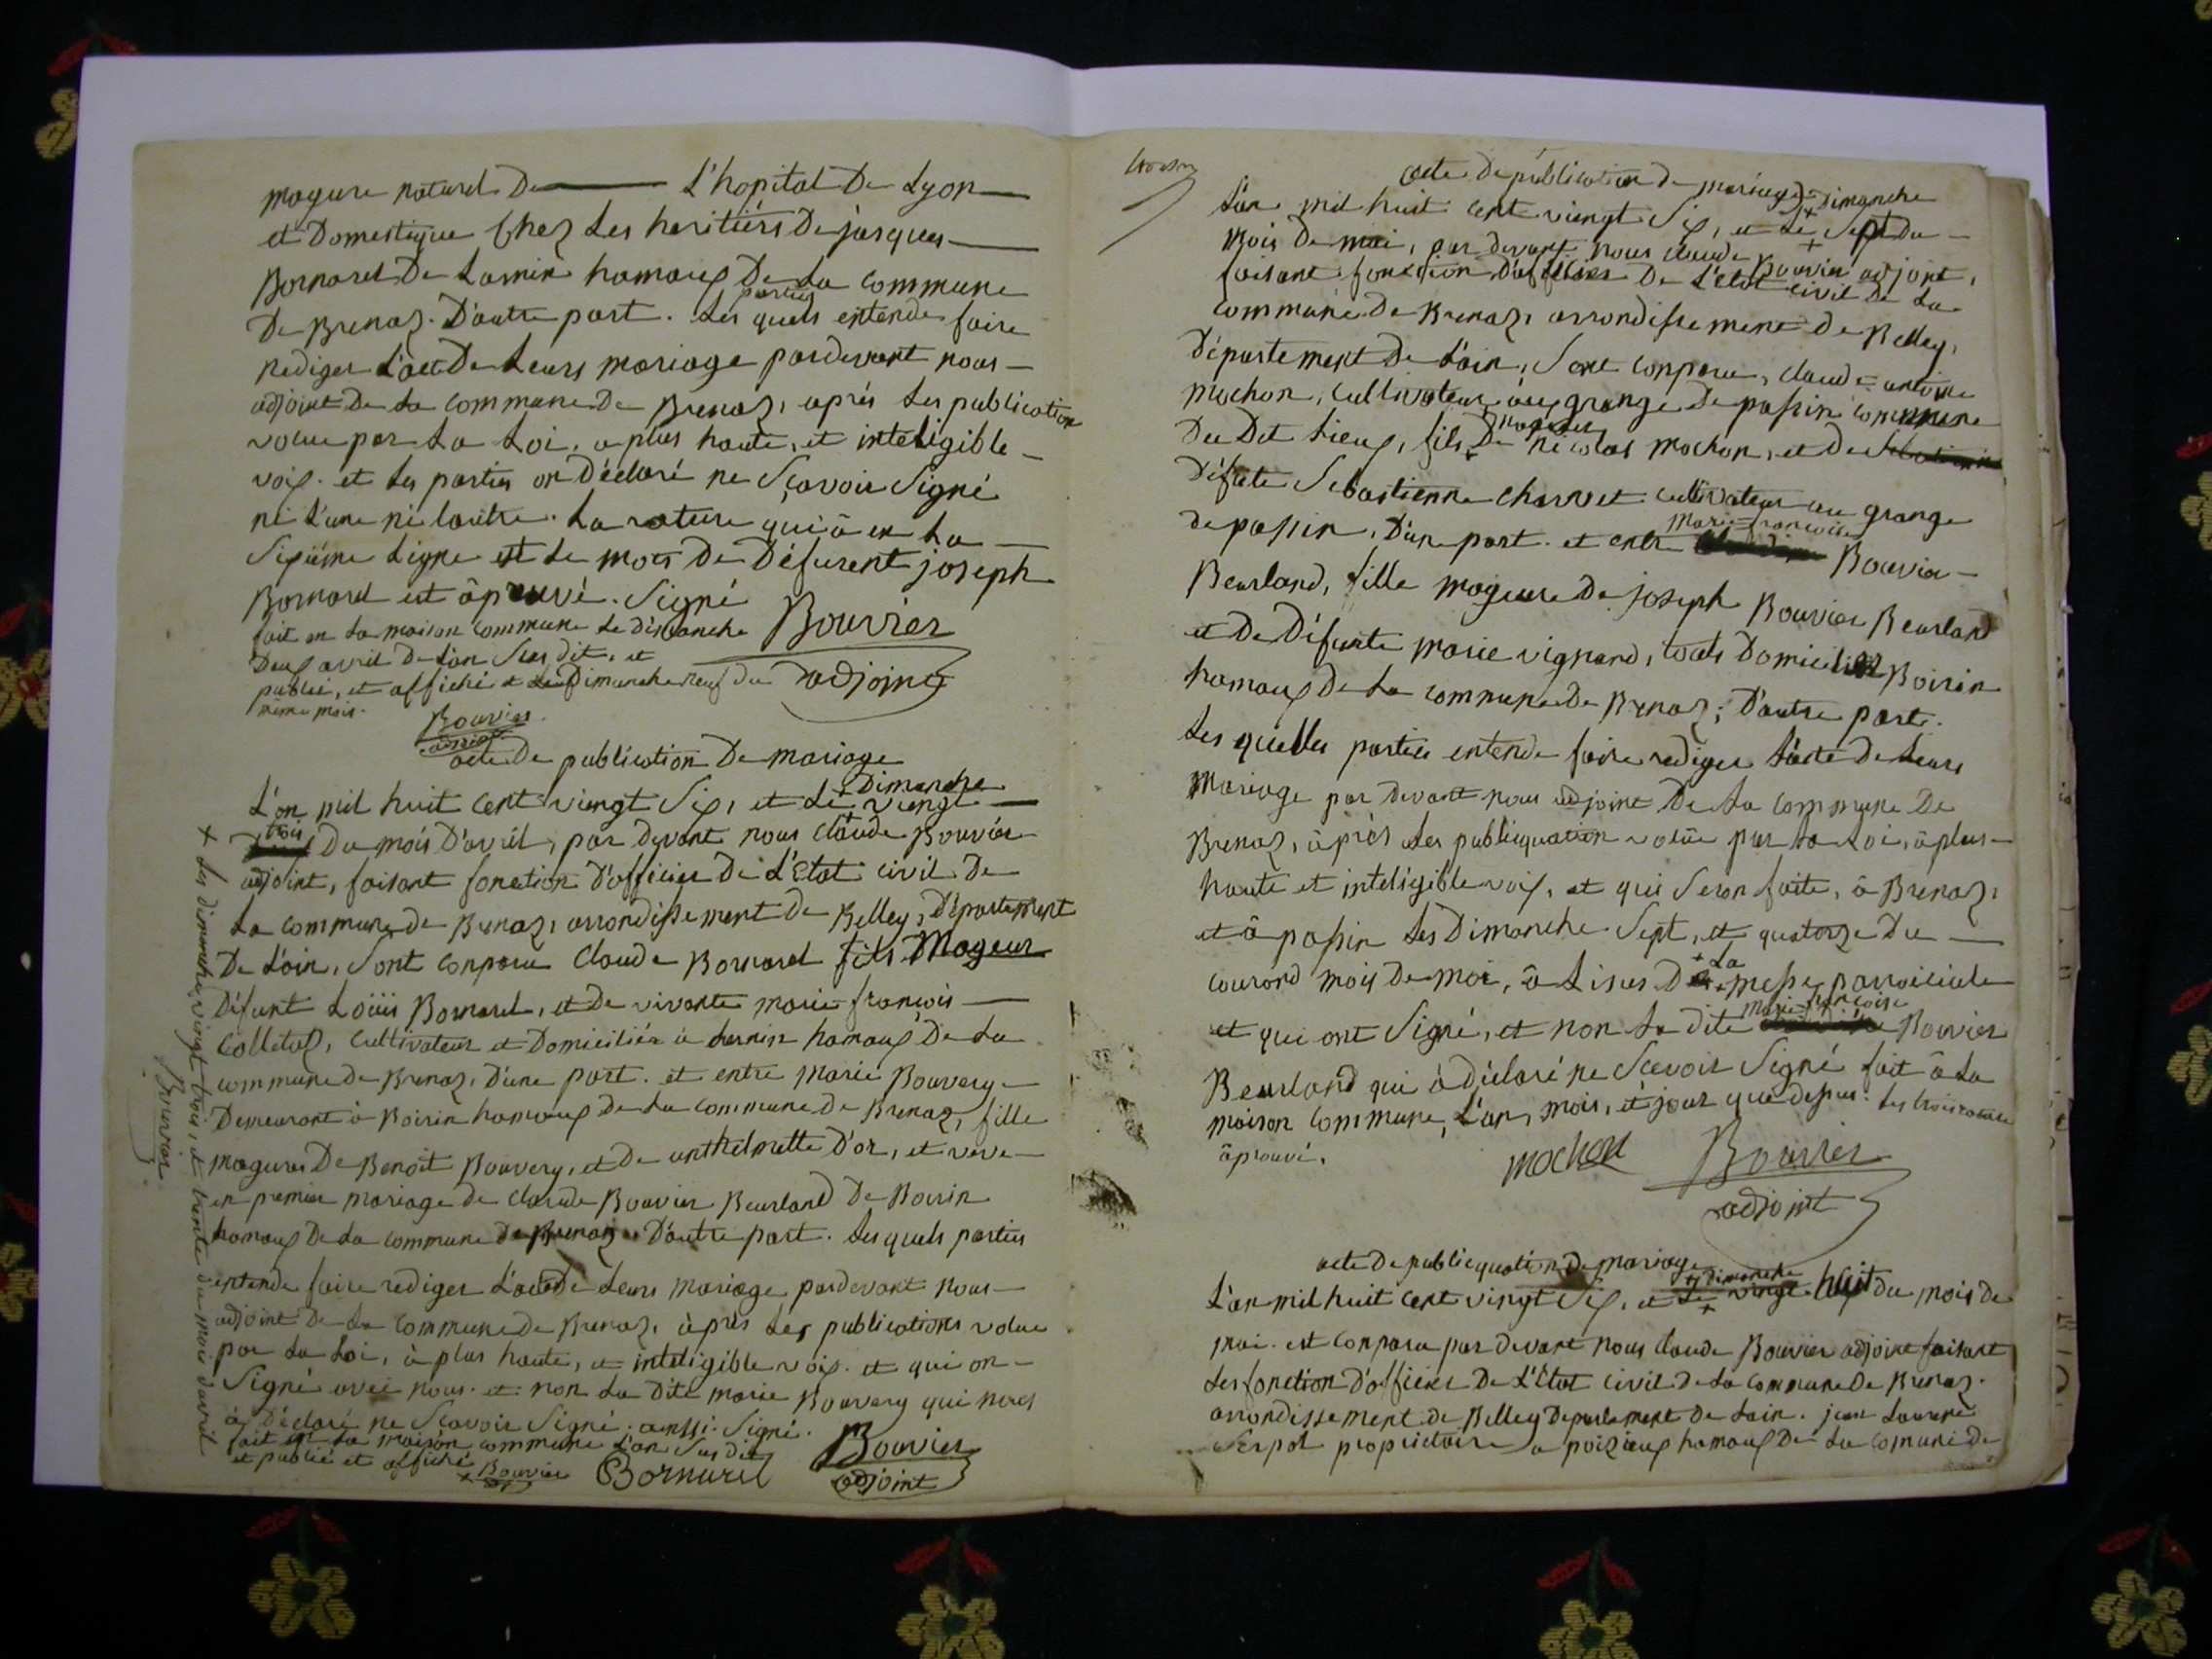 mageure naturel De L'hopital De Lyon
et Domestique Chez Les heritiérs De jasques
Bornarel De Larnin hamaux De La Commune
De Brenaz. D'autre part. Les quels parties entende faire
rediger L'acte De Leurs mariage pardevant nous
adjoint De La Commune De Brenaz, aprés Les publication
volue par La Loi, a plus haute, et inteligible
voix. et Les parties on Déclaré ne Sçavoir Signé
ni L'une ni lautre. La rature qui â en La
Sixiéme Ligne est Le mots De Défurent joseph
Bornarel est âprouvé. Signé
fait en La maison Commune Le dimanche Bouvier
Deux avril De L'an Sus dit, et
publié, et affiché Le Dimanche neuf du adjoint
meme mois.
Bouvier
adjoint
acte De publication De mariage
L'an mil huit Cent viengt Six, et Le Dimanche viengt
trois Du mois D'avril, par devant nous Claude Bouvier
adjoint, faisant fonction D'officier De L'Etat civil De
La Commune De Brenaz, arrondissement De Belley, Département
De L'ain, Sont Conparu Claude Bornarel fils Mageur
Défunt Loüis Bornarel, et De vivante marie françois
Colletaz, Cultivateur et Domiciliéé à Larnin hamaux De La
commune De Brenaz, D'une part. et entre Marie Bouvery
Demeurant à Boirin hamaux De La Commune De Brenaz, fille
mageures De Benoit Bouvery, et De anthelmette D'or, et veve
en premier mariage De Claude Bouvier Beurland De Boirin
hamaux De La Commune De Brenaz D'autre part. Les quels parties
entende faire rediger L'acte De Leurs mariage pardevant nous
adjoint De La Commune De Brenaz, àprés Les publications volue
par La Loi, à plus haute, et inteligible voix. et qui on
Signé avec nous. et non La Dite marie Bouvery qui nous
à Déclaré ne Sçavoir Signé. aussi Signé.
fait en La maison Commune L'an Sus dit Bouvier
et publié et affiché + Bouvier Bornarel adjoint
+ Les dimanche vingt trois, et trente du mois davril
Bouvier
acte De publication De mariage
L'an mil huit Cent viengt Six, et Le + Dimanche Sept Du
Mois De mai, par devant nous Claude Bouvier adjoint,
faisant fonction D'officier De L'etat civil De La
Commune De Brenaz, arrondissement De Belley,
Département De L'ain, Sont Conparu, Claude antoine
Mochon, Cultivateur, aux grange De passin Commune
Du Dit Lieux, fils mageur De Nicolas Mochon, et De
Défute Sebastienne Charvet Cultivateur au grange
De passin, D'une part. et entre Marie françoise Bouvier
Beurland, fille mageure De joseph Bouvier Beurland
et De Défunte Marie vignand, touts Domicilié Boirin
hamaux De La Commune De Brenaz; D'autre part.
Les quelles parties entende faire rediger L'acte De Leurs
Mariage par devant nous adjoint De La Commune De
Brenaz, àprés Les publiquation volue par La Loi, à plus
haute et inteligible voix, et qui Seron faite, à Brenaz,
et à passin Les Dimanche Sept, et quatorze Du
courand mois De mai, à L'isus De + La messe parroiciale
et qui ont Signé, et non La Dite Marie françoise Bouvier
Beurland qui à Déclaré ne Scavoir Signé fait à La
maison Commune, L'an, mois, et jour que Desus. Les trois rature
âprouvé.
mochon Bouvier
adjoint
acte De publicquation De mariage
L'an mil huit Cent vingt Six, et Le + dimanche vingt huit Du mois De
mai. est Conparu par devant nous Claude Bouvier adjoint faisant
Les fonction D'officier De L'Etat civil De La Commune De Brenaz.
arrondissement De Belley Departement De Lain. jean Laurent
Serpol propriétaire a poizieux hamaux De La Comune De